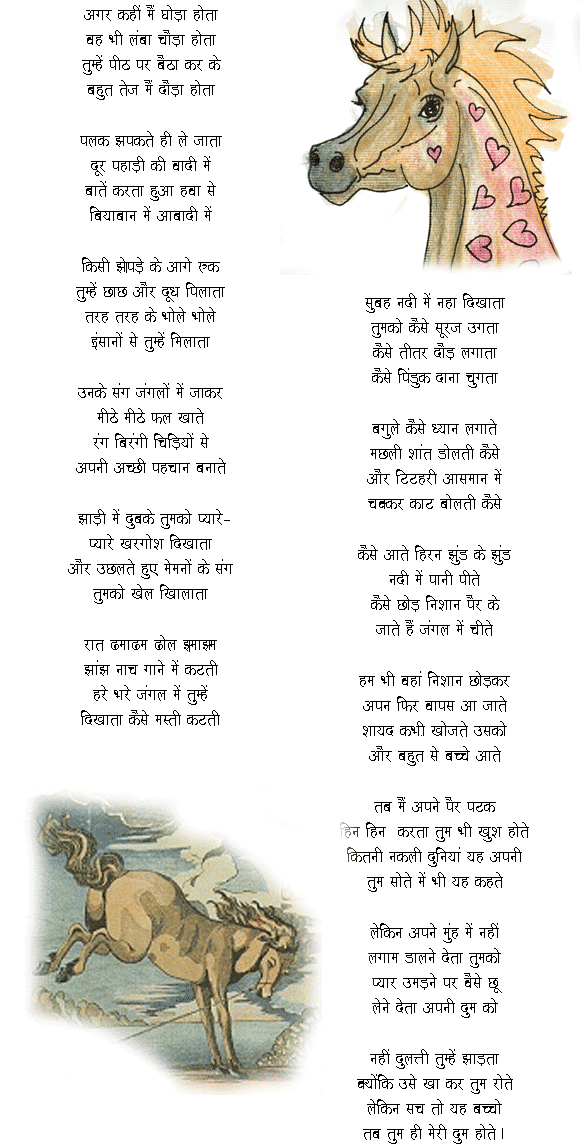 अगर कहीं मैं घोड़ा होता
वह भी लंबा चौड़ा होता
तुम्हें पीठ पर बैठा कर के
बहुत तेज मैं दौड़ा होता
पलक झपकते ही ले जाता
दूर पहाड़ी की वादी में
बातें करता हुआ हवा से
बियाबान में आबादी में
किसी झेपड़े के आगे रुक
तुम्हें छाछ और दूध पिलाता
तरह तरह के भोले भोले
इंसानों से तुम्हें मिलाता
उनके संग जंगलों में जाकर
मीठे मीठे फल खाते
रंग बिरंगी चिड़ियों से
अपनी अच्छी पहचान बनाते
झाड़ी में दुबके तुमको प्यारे-
प्यारे खरगोश दिखाता
और उछलते हुए मेमनों के संग
तुमको खेल खिालाता
रात ढमाढम ढोल झमाझम
झांझ नाच गाने में कटती
हरे भरे जंगल में तुम्हें
दिखाता कैसे मस्ती कटती
सुबह नदी में नहा दिखाता
तुमको कैसे सूरज उगता
कैसे तीतर दौड़ लगाता
कैसे पिंडुक दाना चुगता
बगुले कैसे ध्यान लगाते
मछली शांत डोलती कैसे
और टिटहरी आसमान में
चक्कर काट बोलती कैसे
कैसे आते हिरन झुंड के झुंड
नदी में पानी पीते
कैसे छोड़ निशान पैर के
जाते हैं जंगल में चीते
हम भी वहां निशान छोड़कर
अपन फिर वापस आ जाते
शायद कभी खोजते उसको
और बहुत से बच्चे आते
तब मैं अपने पैर पटक
हिन हिन करता तुम भी खुश होते
कितनी नकली दुनियां यह अपनी
तुम सोते में भी यह कहते
लेकिन अपने मुंह में नहीं
लगाम डालने देता तुमको
प्यार उमड़ने पर वैसे छू
लेने देता अपनी दुम को
नहीं दुलत्ती तुम्हें झाड़ता
क्योंकि उसे खा कर तुम रोते
लेकिन सच तो यह बच्चो
तब तुम ही मेरी दुम होते।